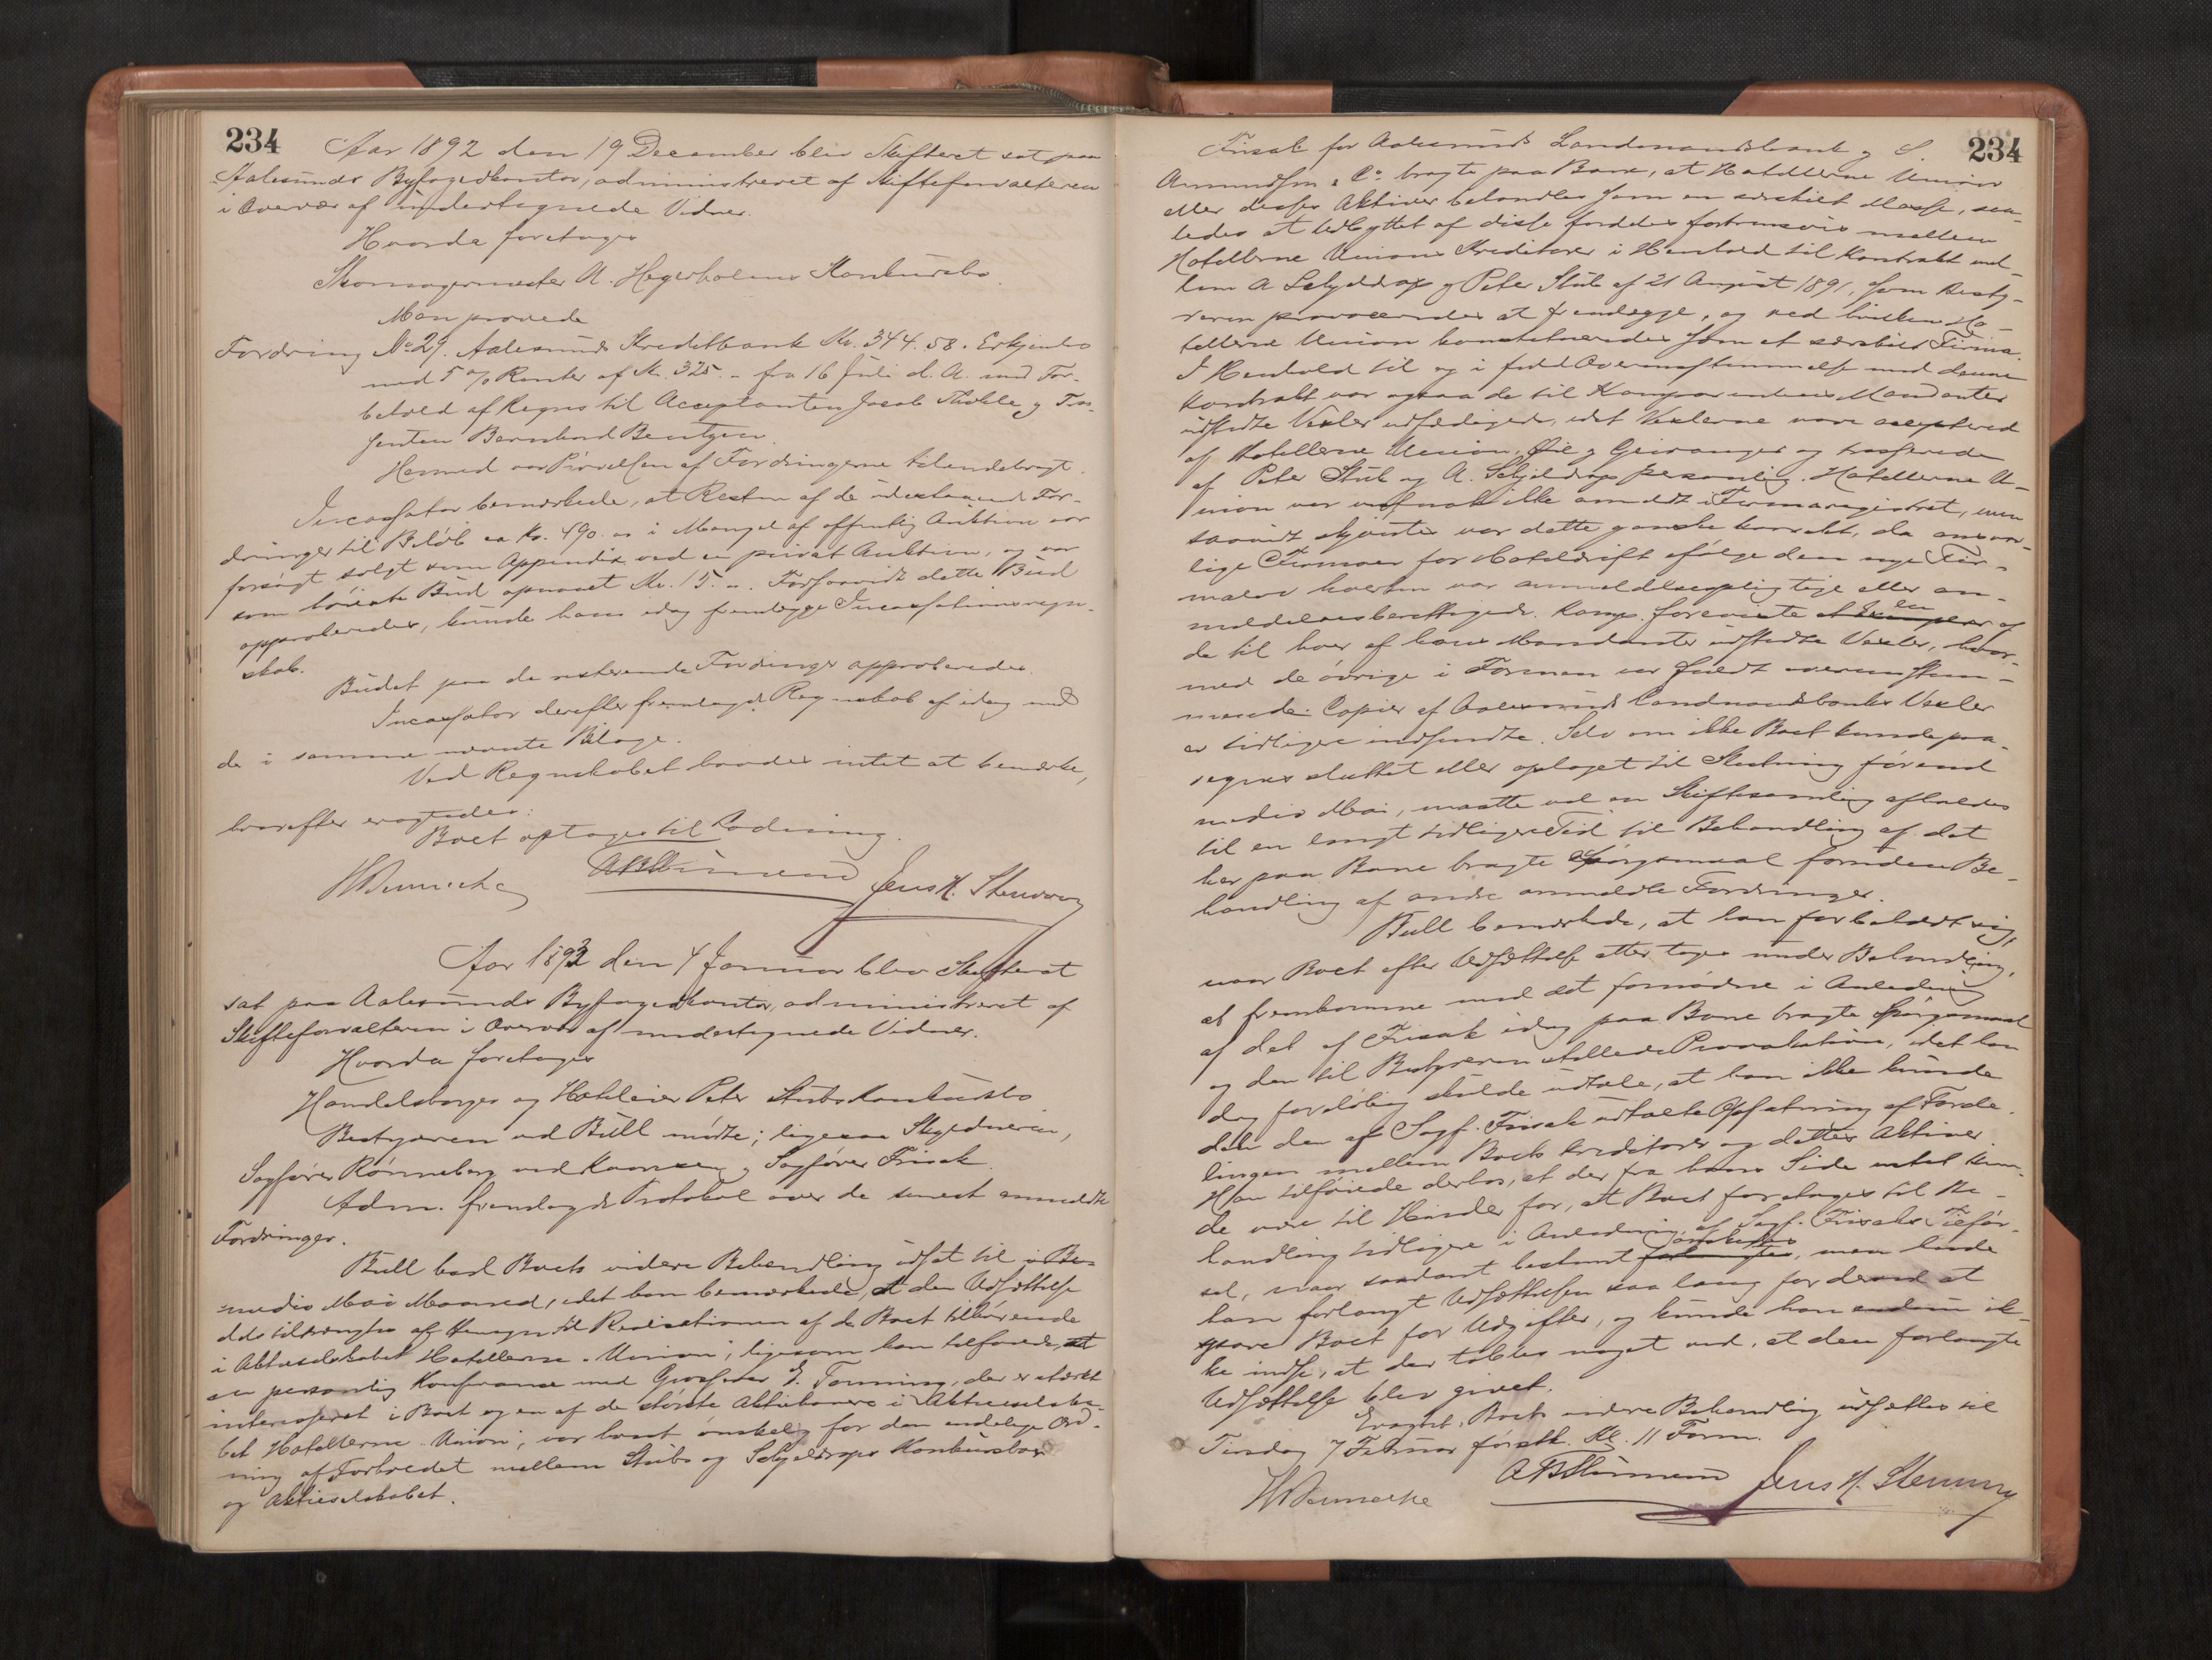 234
Aar 1892 den 19 December blev Skifteret sat paa
Aalesunds Byfogedkontor, administreret af Skifteforvalteren
i Overvær af undertegnede Vidner.
Hvorda foretoges
Skomagermester A. Hegerholms Konkursbo.
Man prøvede
Fordring No 29. Aalesunds Kreditbank Kr. 344.58. Erkjendes
med 5 % Renter af Kr. 325.- fra 16 Juli d. A. med For-
behold af Regres til Acceptanten Jacob og Tras-
senten Bernhard Bentzen.
Hermed var Prøvelsen af Fordringerne tilendebragt.
Incassator bemærkede, at Resten af de udestaaende For-
dringer til Beløb ca Kr. 490.00 i Mangel af offentlig Auktion var
forsøgt solgt som Appendix ved en privat Auktion, og var
som høieste Bud opnaaet Kr. 15.00. Forsaavidt dette Bud
approberedes, kunde han idag fremlægge Incassationsregn-
skab.
Budet paa de resterende Fordringer approberedes.
Incassator derefter fremlagde Regnskab af idag med
de i samme nævnte Bilage.
Ved Regnskabet havdes intet at bemærke,
hvorefter eragtedes:
Boet optages til Lodning.
Jens K. Stenvaag
Aar 1893 den 4 Januar blev Skifteret
sat paa Aalesunds Byfogedkontor, administreret af
Skifteforvalteren i Overvær af undertegnede Vidner.
Hvorda foretoges
Handelsborger og Hoteleier Peter Stubs Konkursbo
Bestyreren ved Bull mødte; ligesaa Skyldneren,
Sagfører Rønneberg ved og Sagfører Frisak.
Adm. fremlagde Protokol over de senest anmeldte
Fordringer.
Bull bad Boets videre Behandling udsat til
medio Mai Maaned, idet han bemærkede, at den Udsættelse
dels tiltrængtes af Hensyn til Realisationen af de Boet tilhørende
i Aktieselskabet Hotellerne Union; ligesom han tilføiede, at
en personlig Konferance med Grosserer E. Tønning, der er stærkt
interesseret i Boet og en af de største Aktionærer i Aktieselska-
bet Hotellerne Union, var høist ønskelig for den endelige Ord-
ning af Forholdet mellem Stubs og Schjeldrops Konkursboer
og Aktieselskabet.
234
Frisak for Aalesunds Landmandsbank og S.
Amundsen & Co bragte paa Bane, at Hotellerne Union
eller disses Aktiver behandles som en særskilt Masse, saa-
ledes at Udbyttet af disse fordeles fortrinsvis mellem
Hotellerne Unions Kreditorer i Henhold til Kontrakt mel-
lem A Schjeldrop og Peter Stub af 21 August 1891, som Besty-
reren provoceredes at fremlægge, og ved hvilken Ho-
tellerne Union konstitueredes som et særskilt Firma.
I Henhold til og i fuld Overensstemmelse med denne
Kontrakt var ogsaa de til Komparentens Mandanter
udstedte Vexler udfærdigede, idet Vexlerne vare accepterede
af Hotellerne Union, Øie og Geiranger og trasserede
af Peter Stub og A. Schjeldrop personlig. Hotellerne U-
nion var vistnok ikke anmeldt i Firmaregistret, men
saavidt skjøntes var dette ganske korrekt, da ansvar-
lige Firmaer for Hoteldrift ifølge den nye Fir-
malov hverken var anmeldelsespligtige eller an-
meldelsesberettigede. Komp. foreviste en af
de til hver af hans Mandanter udstedte Vexler, hvor-
med de øvrige i Formen var fuldt overensstem-
mende. Copier af Aalesunds Landmandsbanks Vexler
er tidligere indsendte. Selv om ikke Boet kunde paa-
regnes sluttet eller optaget til Slutning førend
medio Mai, maatte vel en Skiftesamling afholdes
til en langt tidligere Tid til Behandling af det
her paa Bane bragte Spørgsmaal foruden Be-
handling af andre anmeldte Fordringer.
Bull bemærkede, at han forbeholdt sig,
naar Boet efter Udsættelse atter toges under Behandling,
at fremkomme med det fornødne i Anledning
af det af Frisak idag paa Bane bragte Spørgsmaal
og den til Bestyreren stillede Provokation, idet han
dog foreløbig skulde udtale, at han ikke kunde
dele den af Sagf. Frisak udtalte Opfatning af Forde-
lingen mellem Boets Kreditorer og dettes Aktiver.
Han tilføiede derhos, at der fra hans Side intet kun-
de være til Hinder for, at Boet foretages til Be-
handling tidligere i Anledning af Sagf. Frisaks Tilfør-
sel, naar saadant bestemt ønskedes, men havde
han forlangt Udsættelsen saa lang for derved at
spare Boet for Udgifter, og kunde han endnu ik-
ke indse, at der tabtes noget ved, at den forlangte
Udsættelse blev givet.
Eragtet: Boets videre Behandling udsættes til
Tirsdag 7 Februar førstk. Kl. 11 Form.
Jens K. Stenvaag